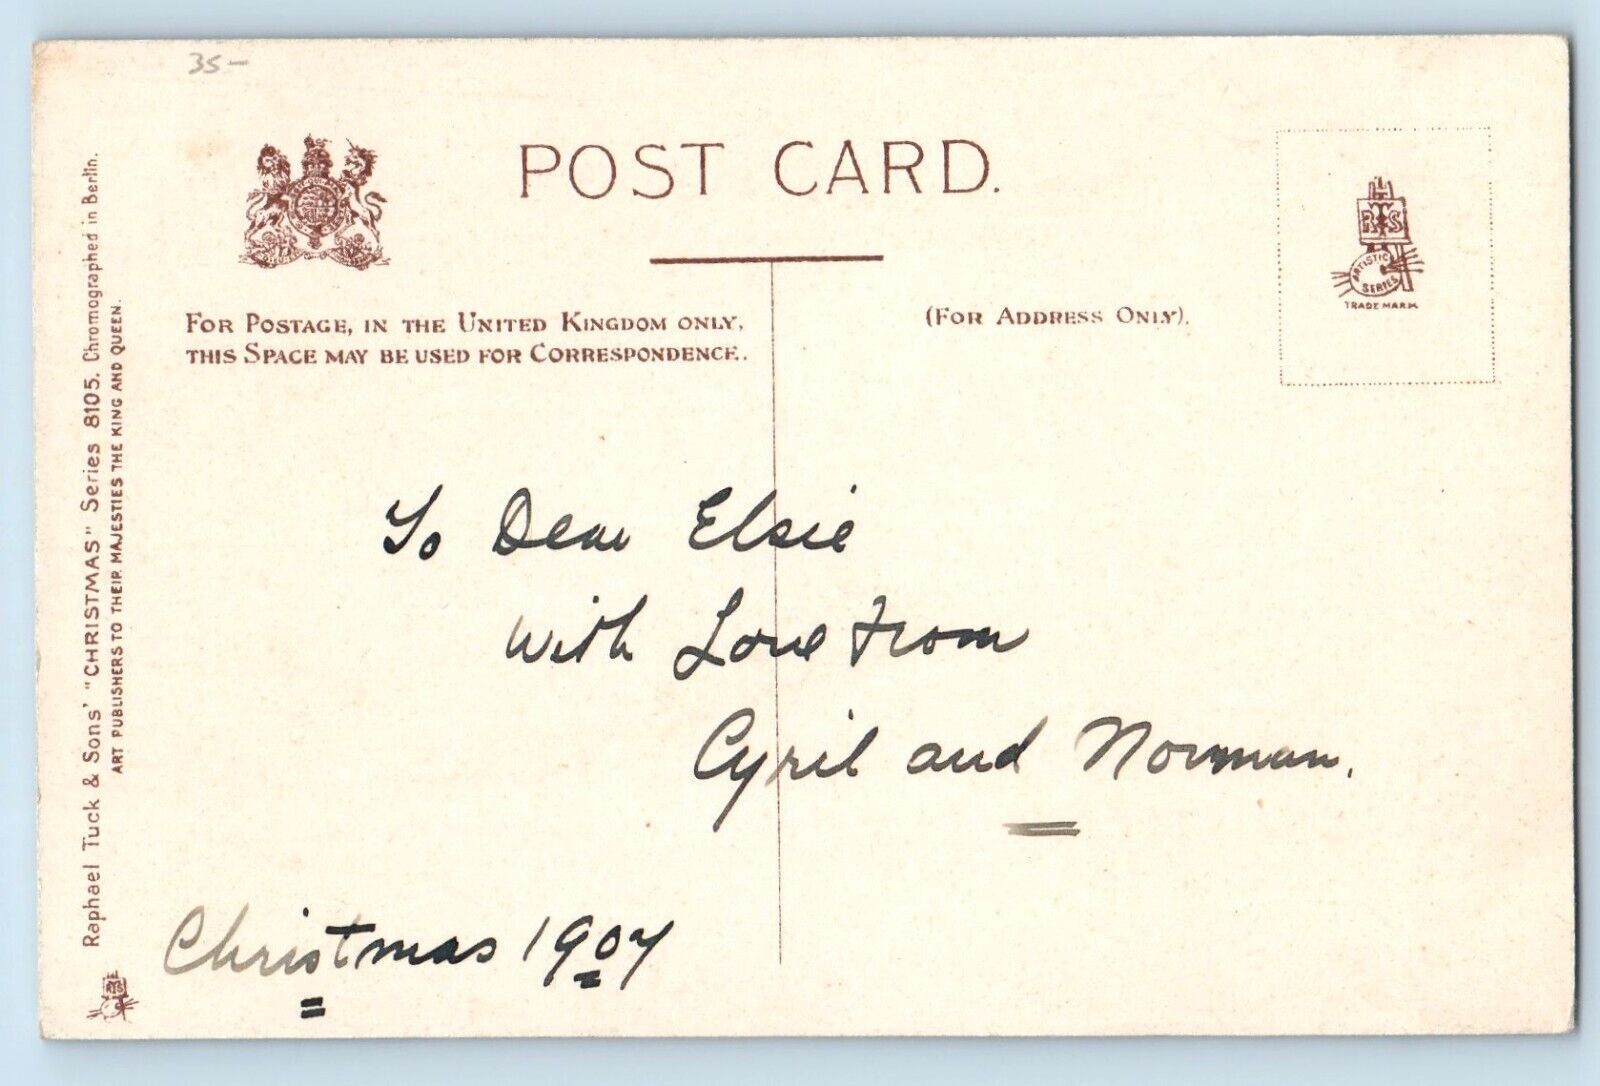 35-
POST CARD.
FOR POSTAGE, IN THE UNITED KINGDOM ONLY,
THIS SPACE MAY BE USED FOR CORRESPONDENCE.
(FOR ADDRESS ONLY).
RTS
ARTISTIC
SERIES
TRADE MARK
To Dear Elsie
with Love from
Cyril and Norman.
Christmas 1907
Raphael Tuck & Sons' "CHRISTMAS" Series 8105. Chromographed in Berlin.
ART PUBLISHERS TO THEIR MAJESTIES THE KING AND QUEEN.
RTS